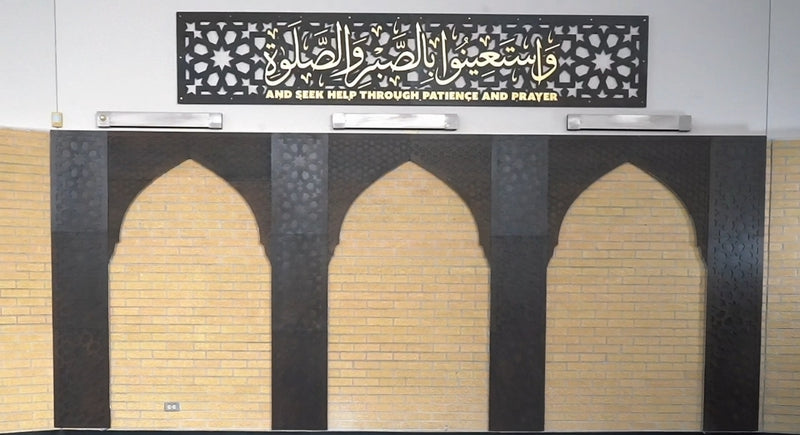 وَاسْتَعِينُوا بِالصَّبْرِ وَالصَّلَوٰةِ
AND SEEK HELP THROUGH PATIENCE AND PRAYER